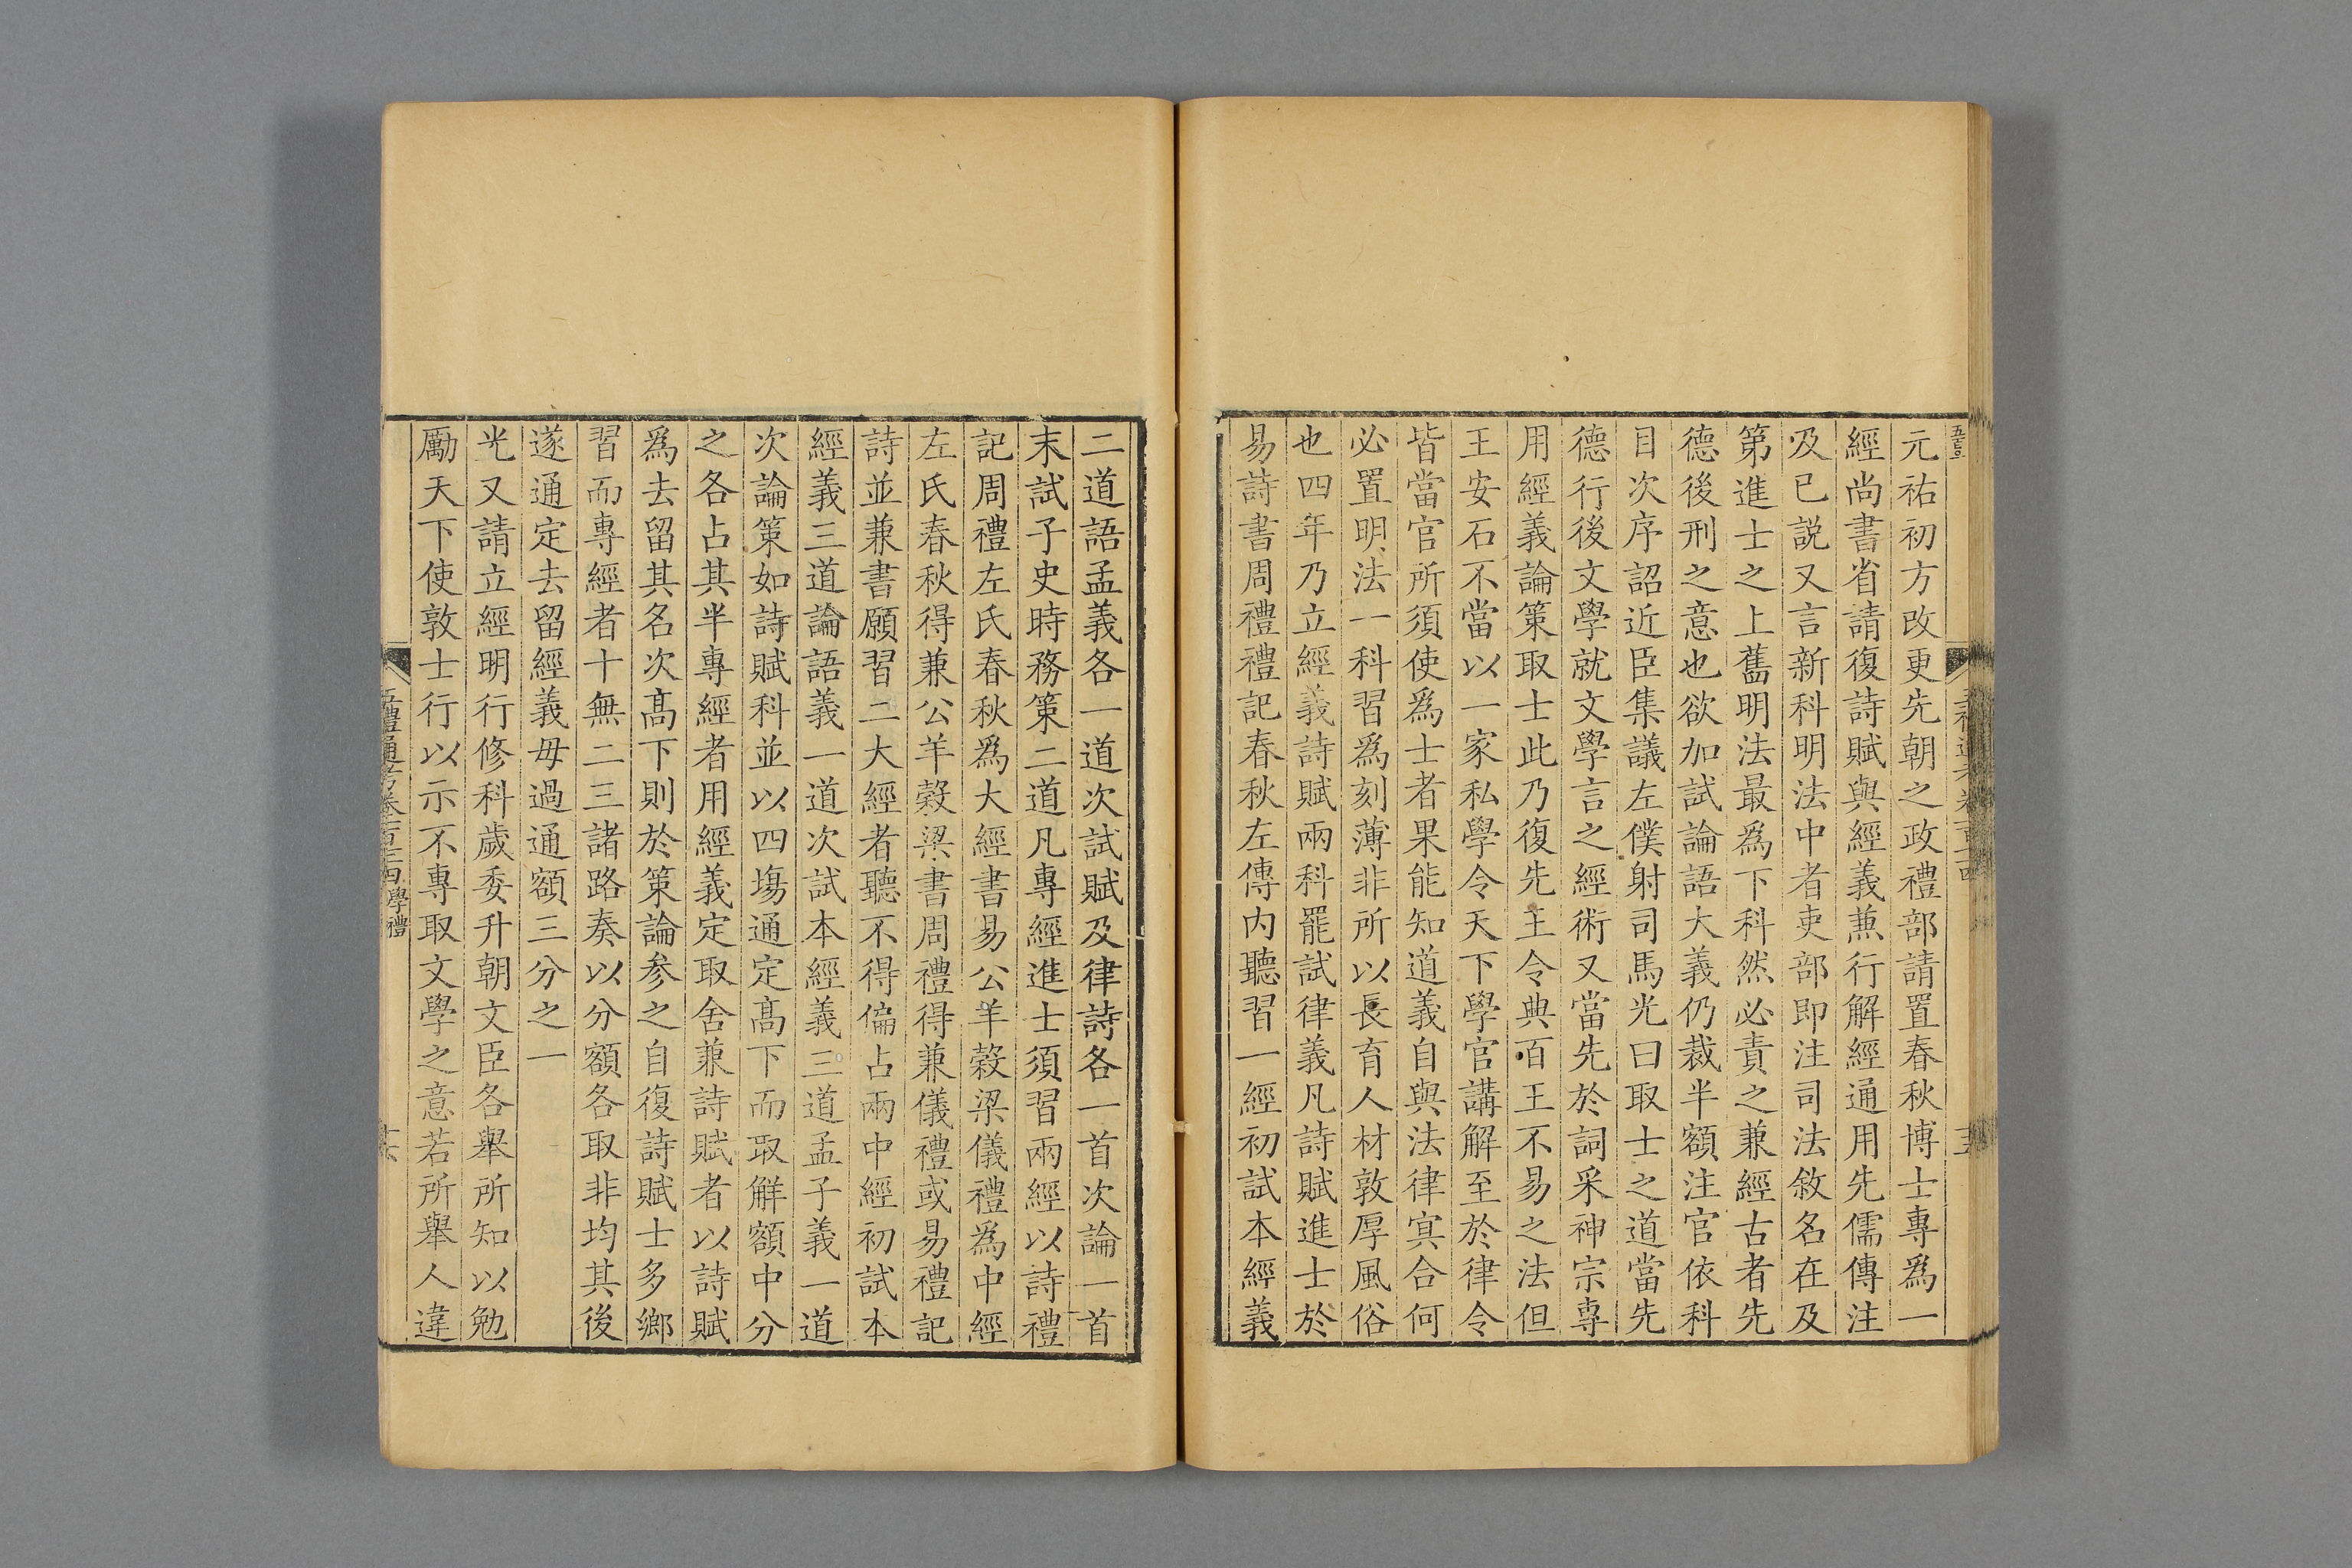 元祐初方改更先朝之政禮部請置春秋博士專爲一
經尚書省請復詩賦與經義兼行解經通用先儒傳注
及已説又言新科明法中者吏部即注司法敘名在及
第進士之上舊明法最爲下科然必責之兼經古者先
德後刑之意也欲加試論語大義仍裁半額注官依科
目次序詔近臣集議左僕射司馬光曰取士之道當先
德行後文學就文學言之經術又當先於詞采神宗專
用經義論策取士此乃復先王令典百王不易之法但
王安石不當以一家私學令天下學官講解至於律令
皆當官所須使爲士者果能知道義自與法律冥合何
必置明法一科習爲刻薄非所以長育人材敦厚風俗
也四年乃立經義詩賦兩科罷試律義凡詩賦進士於
易詩書周禮禮記春秋左傳内聽習一經初試本經義
二道語孟義各一道次試賦及律詩各一首次論一首
末試子史時務策二道凡專經進士須習兩經以詩禮
記周禮左氏春秋爲大經書易公羊穀梁儀禮爲中經
左氏春秋得兼公羊穀梁書周禮得兼儀禮或易禮記
詩並兼書願習二大經者聽不得偏占兩中經初試本
經義三道論語義一道次試本經義三道孟子義一道
次論策如詩賦科並以四場通定髙下而取解額中分
之各占其半專經者用經義定取舍兼詩賦者以詩賦
爲去留其名次髙下則於策論参之自復詩賦士多鄉
習而專經者十無二三諸路奏以分額各取非均其後
遂通定去留經義毋過通額三分之一
光又請立經明行修科歲委升朝文臣各舉所知以勉
勵天下使敦士行以示不專取文學之意若所舉人違
五禮通考卷一百七十四 學禮
十六